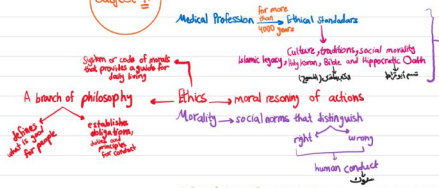 Subject 1
Medical Profession for more than 4000 years Ethical standadars
Culture, traditions, social morality
Islamic legacy, Holy koran, Bible and Hippocratic Oath
System or code of morals
that provides a guide for
daily living
A branch of philosophy ← Ethics → moral resoning of actions
Morality → social norms that distinguish
defines
what is good
for people
establishes
obligations,
duties and
principles
for conduct
right wrong
human conduct